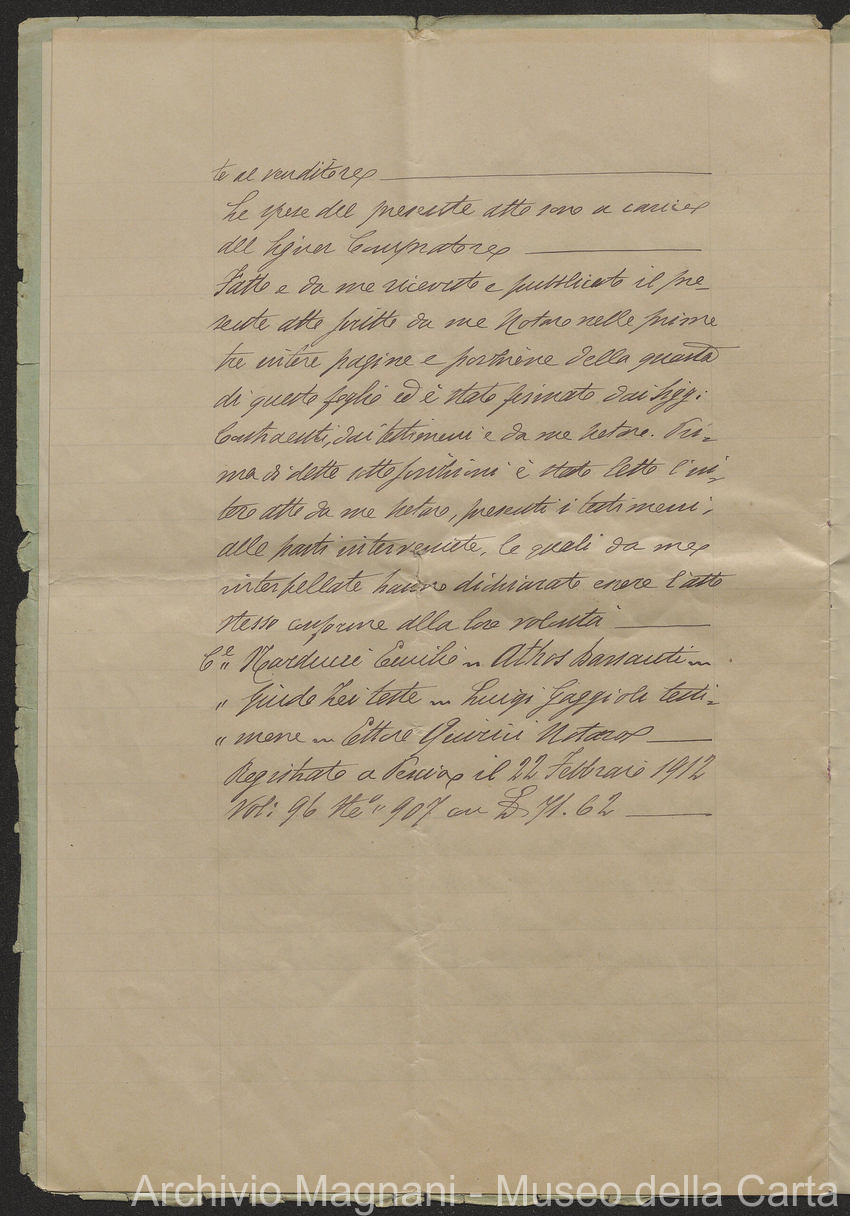 te al venditore
Le spese del presente atto sono a carico
del Signor Compratore
Fatto e da me ricevuto e pubblicato il pre=
sente atto scritto da me Notaro nelle prime
tre intere pagine e porzione della quarta
di questo foglio ed è stato firmato dai Sigg:
Contraenti, dai testimoni e da me notaro. Pri=
ma di dette sottoscrizioni è stato letto l'in=
tero atto da me notaro, presenti i testimoni,
alle parti intervenute, le quali da me
interpellate hanno dichiarato essere l'atto
stesso conforme alla loro volontà
Narducci Emilio " Athos Bassanti "
" Guido Lei teste " Luigi Gaggioli testi=
mone " Ettore Quirici Notaro
Registrato a Pescia il 22 Febbraio 1912
Vol: 96 N° 907 con £ 71.62
Archivio Magnani - Museo della Carta